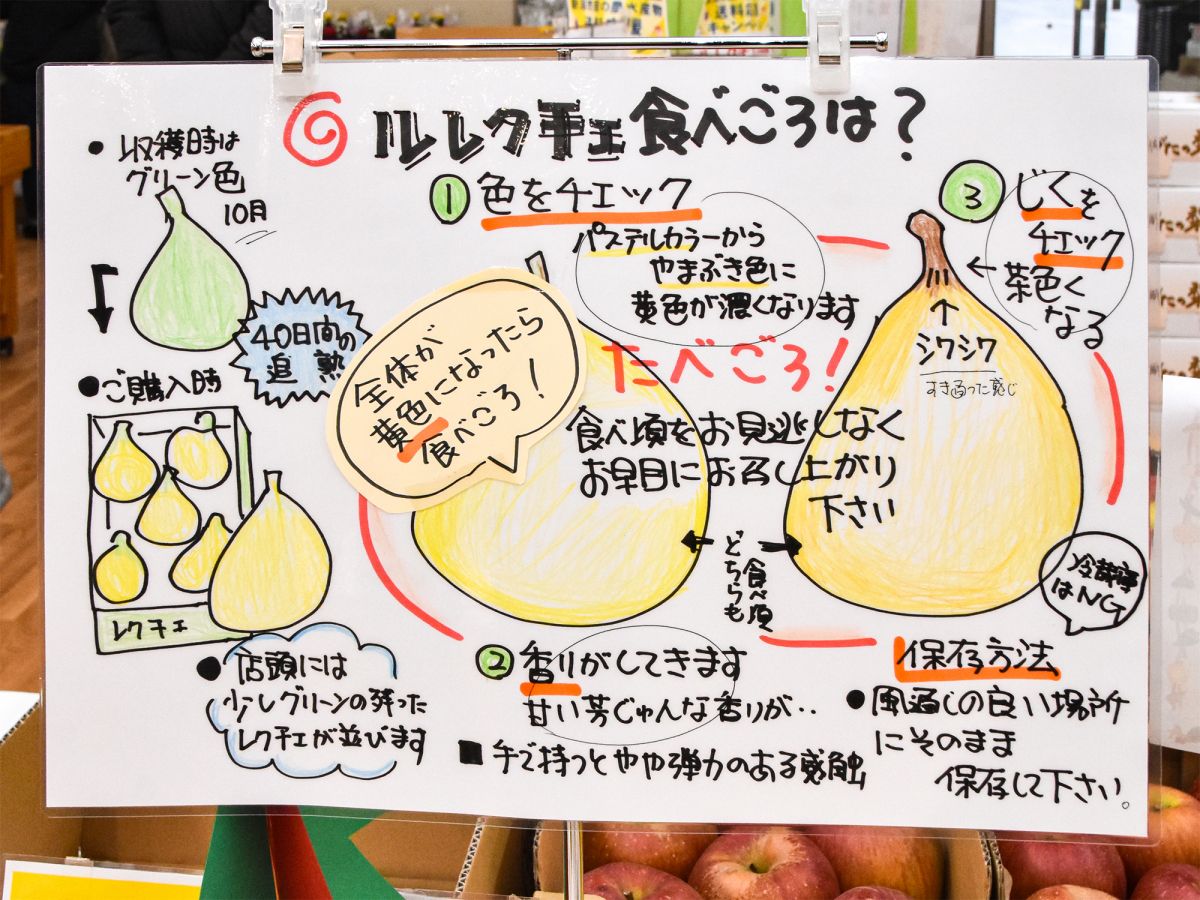 ルレクチェ食べごろは?
●収穫時は
グリーン色
10月
40日間の
追熟
●ご購入時
レクチェ
●店頭には
少しグリーンの残った
レクチェが並びます
①色をチェック
パステルカラーから
やまぶき色に
黄色が濃くなります
全体が
黄色になったら
食べごろ!
たべごろ!
食べ頃をお見逃しなく
お早目にお召し上がり
下さい
どちらも
食べ頃
②香りがしてきます
甘い芳じゅんな香りが‥
■手で持つとやや弾力のある感触
③じくを
チェック
←茶色く
なる
↑
シワシワ
すき通った感じ
冷蔵庫
はNG
保存方法
●風通しの良い場所
にそのまま
保存して下さい。